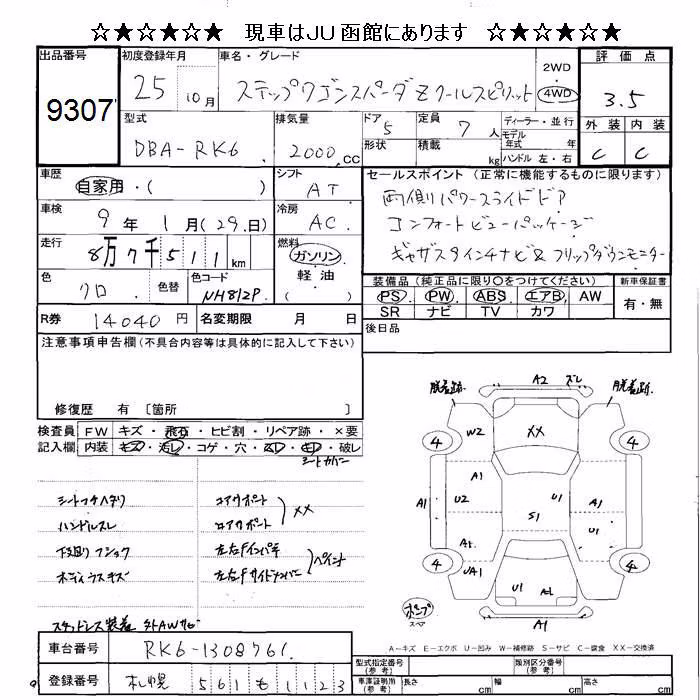 ☆★☆★☆★ 現車はJU函館にあります ☆★☆★☆★
出品番号 初度登録年月 車名・グレード 2WD 評価点
9307 25 10月 ステップワゴンスパーダ Zクールスピリット 4WD 3.5
型式 排気量 ドア 定員 ディーラー・並行 外装 内装
DBA-RK6 2000 CC 5 7人 モデル年式 年式 C C
形状 積載 kg ハンドル 左・右
車歴 シフト セールスポイント (正常に機能するものに限ります)
自家用・( ) AT 両側パワースライドドア
車検 9年 1月(29日) 冷房 AC コンフォートビューパッケージ
走行 8万7千511km 燃料 ガソリン ギャザズ9インチナビ&フリップダウンモニター
軽油
色 色替 色コード ( ) 装備品 (純正品に限り○をつけてください) 新車保証書
クロ NH812P PS PW ABS エアB AW 有・無
R券 14040円 名変期限 月 日 SR ナビ TV カワ
注意事項申告欄(不具合内容等は具体的に記入して下さい) 後日品
修復歴 有 〔箇所 〕
検査員 FW キズ・飛石・ヒビ割・リペア跡・×要
記入欄 内装 キズ・汚レ・コゲ・穴・スレ・キレ・破レ
シートカバー
シートコキヘタリ コアサポート
ハンドルスレ ロアサポート XX
下廻りフショク 左右Fインパネ
ボディウスキズ 左右Fサイドメンバー ペイント
スタッドレス装着
脱着跡 A2 ズレ 脱着跡
W2 XX
4 4
A1 A1
A1 U2 U1 A1 A1
S1
A1 U1
4 UA1 4
U1
ポンプ スペア A1
A－キズ E－エクボ U－凹み W－補修跡 S－サビ C－腐食 XX－交換済
車台番号 RK6-1308761
型式指定番号 (参考) 類別区分番号 (参考)
登録番号 札幌 561 も 1123
車庫証明用 (参考) 長さ cm 幅 cm 高さ cm